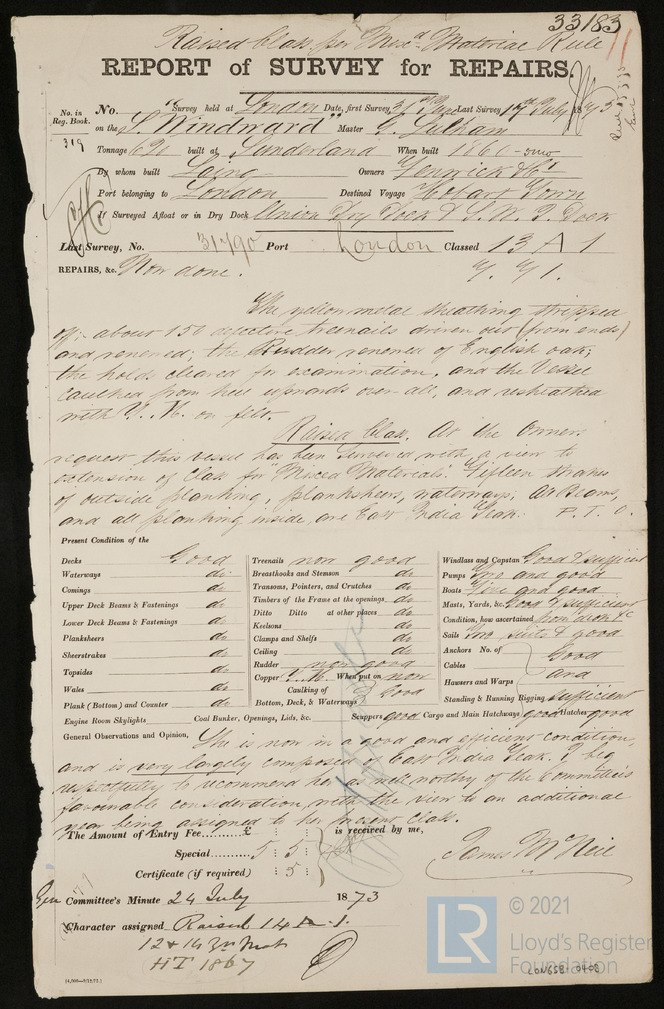 33183
Raised Class per Mixd. Material Rule
REPORT of SURVEY for REPAIRS.
No. in Reg. Book.
319
No. Survey held at London Date, first Survey, Last Survey 17th July 1873
on the S. "Windward" Master
Tonnage built at Sunderland When built 1860
By whom built Laing Owners Fenwick & Co
Port belonging to London Destined Voyage Hobart Town
If Surveyed Afloat or in Dry Dock Union Dry Dock & S. W. I. Dock
Last Survey, No. 31790 Port London Classed 13 A 1
REPAIRS, &c. Now done.
The yellow metal sheathing stripped
off; about 150 defective treenails driven out (from ends)
and renewed; the Rudder renewed of English oak;
the holds cleared for examination, and the Vessel
caulked from keel upwards over all, and resheathed
with Y. M. on felt.
Raised Class. At the Owners
request this vessel has been surveyed with a view to
extension of Class for "Mixed Materials". Fifteen strakes
of outside planking, planksheers, waterways, Beams,
and all planking inside, are East India Teak. P. T. O.
Present Condition of the
Decks Good
Waterways do
Comings do
Upper Deck Beams & Fastenings do
Lower Deck Beams & Fastenings do
Planksheers do
Sheerstrakes do
Topsides do
Wales do
Plank (Bottom) and Counter do
Engine Room Skylights
Treenails now good
Breasthooks and Stemson do
Transoms, Pointers, and Crutches do
Timbers of the Frame at the openings do
Ditto Ditto at other places do
Keelsons do
Clamps and Shelfs do
Ceiling do
Rudder now good
Copper Y. M. When put on now
Caulking of Bottom, Deck, & Waterways Good
Coal Bunker, Openings, Lids, &c.
Windlass and Capstan Good & sufficient
Pumps Two and good
Boats Five and good
Masts, Yards, &c. Good & sufficient
Condition, how ascertained from aloft &c
Sails Two suits & good
Anchors No. of
Cables
Hawsers and Warps
Good and
Standing & Running Rigging sufficient
Scuppers good Cargo and Main Hatchways good Hatches good
General Observations and Opinion, She is now in a good and efficient condition,
and is very largely composed of East India Teak. I beg
respectfully to recommend her as noteworthy of the Committee's
favourable consideration, with the view to an additional
year being assigned to her present Class.
The Amount of Entry Fee £ : : is received by me,
Special 5 : 5 :
Certificate (if required) : 5 :
James McNeil
Committee's Minute 24 July 1873
Character assigned Raised 14 A. 1.
HT 1867
[4,000—2/12/72.]
LR
© 2021
Lloyd's Register
Foundation
LON658-0408